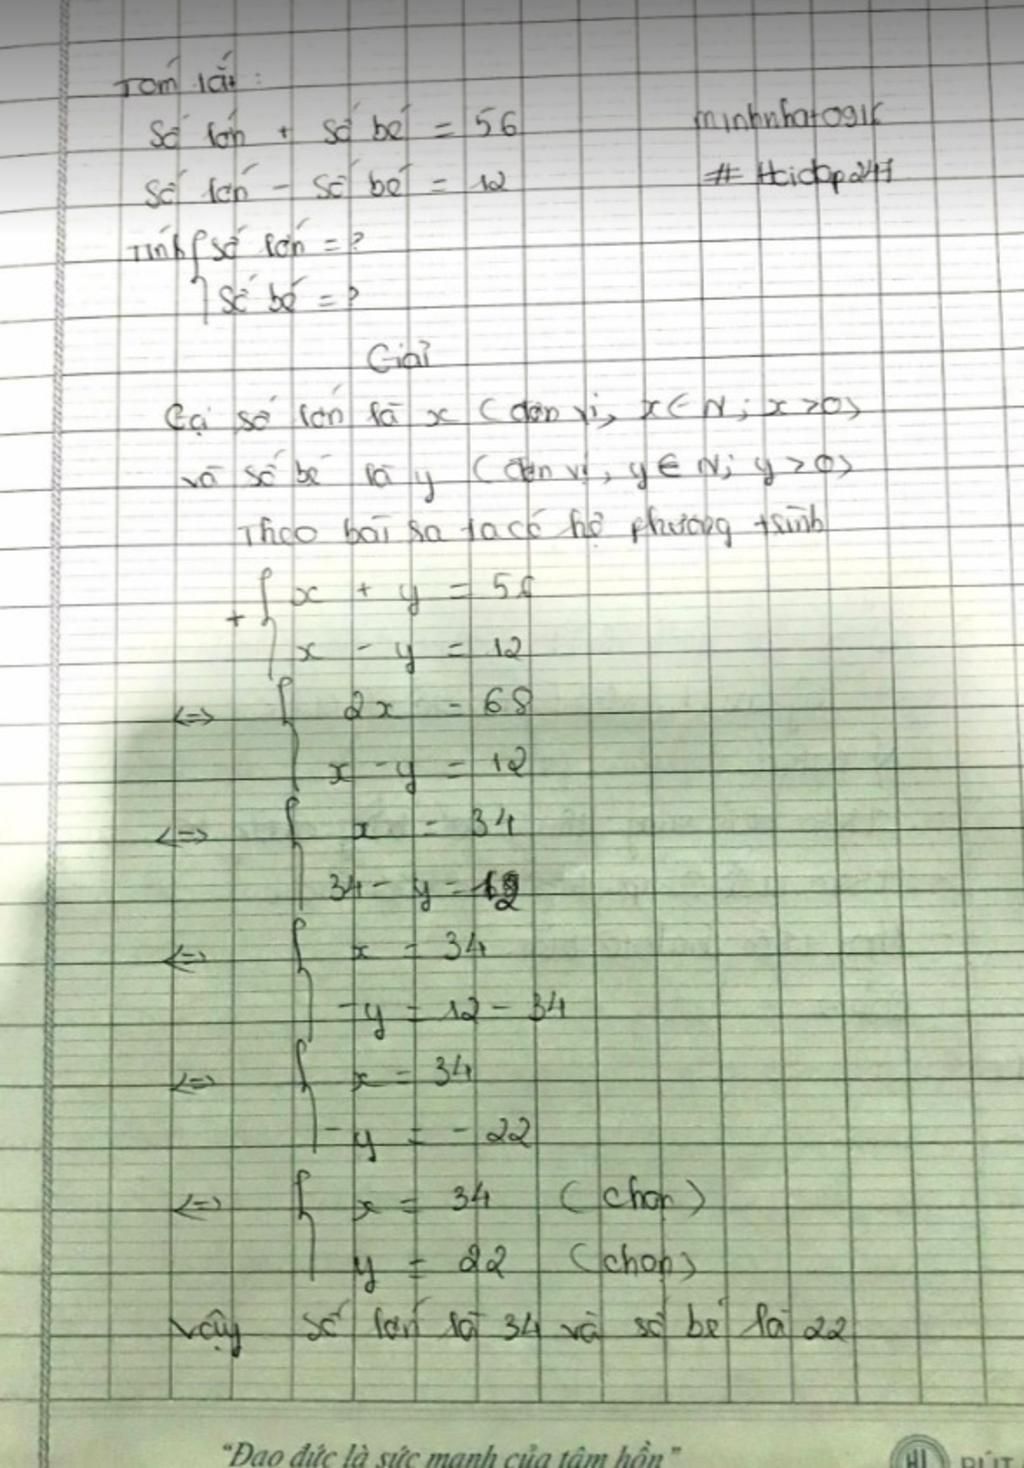 Tóm tắt:
Số lớn + số bé = 56
minhnhat0916
Số lớn - số bé = 12
# Hoidap247
Tính { số lớn = ?
số bé = ?
Giải
Gọi số lớn là x (đơn vị, x ∈ N; x > 0)
và số bé là y (đơn vị, y ∈ N; y > 0)
Theo bài ra ta có hệ phương trình
+ { x + y = 56
x - y = 12
<=> { 2x = 68
x - y = 12
<=> { x = 34
34 - y = 12
<=> { x = 34
-y = 12 - 34
<=> { x = 34
-y = -22
<=> { x = 34 (chọn)
y = 22 (chọn)
Vậy số lớn là 34 và số bé là 22
"Đạo đức là sức mạnh của tâm hồn"
BÚT